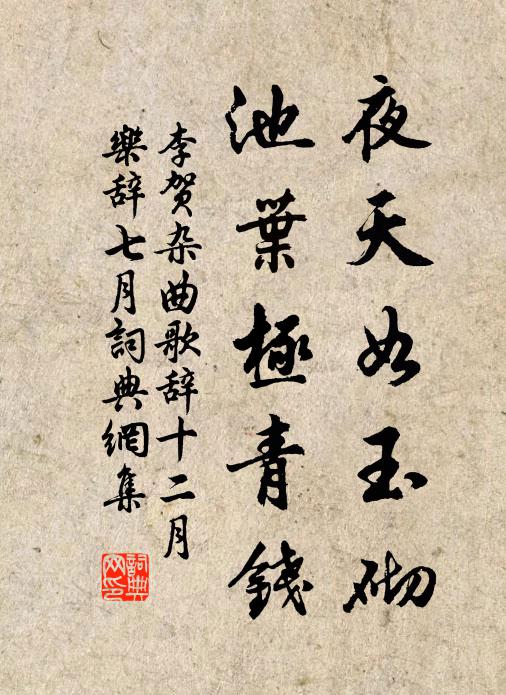 夜天如玉砌
池葉極青錢
李贺杂曲歌辞十二月
樂辞七月詞典網集
詞典网印